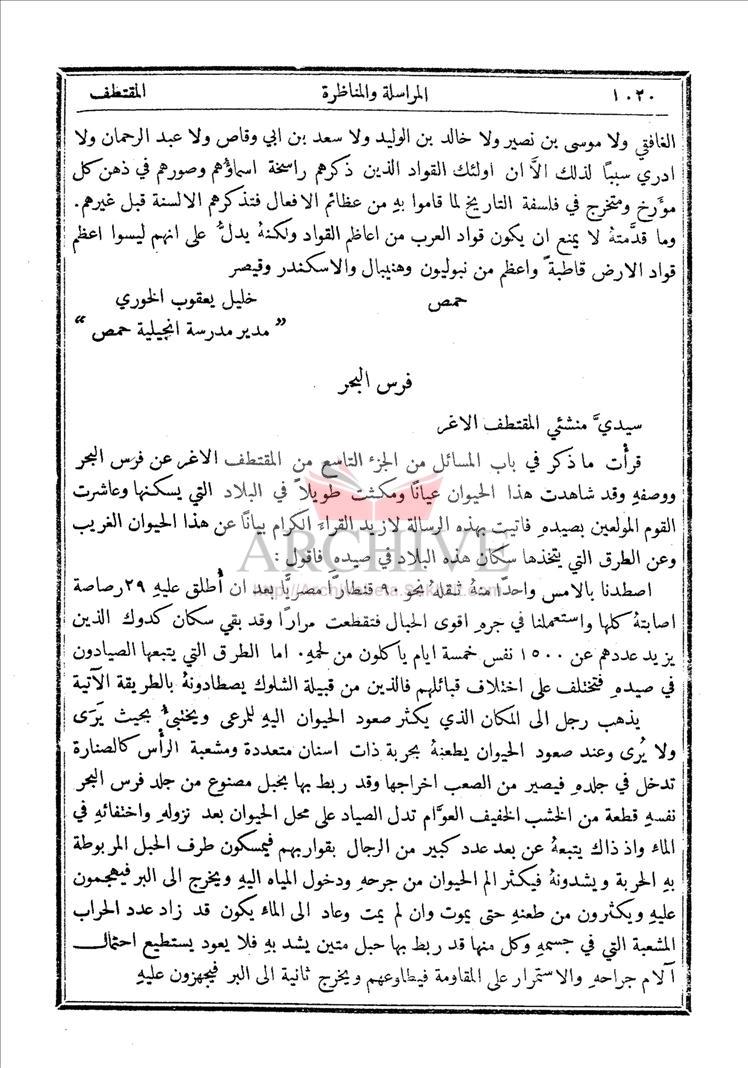 ١٠٢٠ المراسلة والمناظرة المقتطف
الغافقي ولا موسى بن نصير ولا خالد بن الوليد ولا سعد بن ابي وقاص ولا عبد الرحمان ولا
ادري سببًا لذلك الاَّ ان اولئك القواد الذين ذكرهم راسخة اسماؤُهم وصورهم في ذهن كل
مؤَرخ ومتخرج في فلسفة التاريخ لما قاموا بهِ من عظائم الافعال فتذكرهم الالسنة قبل غيرهم.
وما قدَّمتهُ لا يمنع ان يكون قواد العرب من اعاظم القواد ولكنهُ يدلُّ على انهم ليسوا اعظم
قواد الارض قاطبةً واعظم من نبوليون وهنيبال والاسكندر وقيصر
حمص خليل يعقوب الخوري
" مدير مدرسة انجيلية حمص "
فرس البحر
سيديَّ منشئي المقتطف الاغر
قرأْت ما ذكر في باب المسائل من الجزء التاسع من المقتطف الاغر عن فرس البحر
ووصفهِ وقد شاهدت هذا الحيوان عيانًا ومكثت طويلاً في البلاد التي يسكنها وعاشرت
القوم المولعين بصيدهِ فاتيت بهذه الرسالة لازيد القراءَ الكرام بيانًا عن هذا الحيوان الغريب
وعن الطرق التي يتخذها سكان هذه البلاد في صيدهِ فاقول :
ARCHIVE
اصطدنا بالامس واحدًا منهُ ثقلهُ نحو ٩٠ قنطارًا مصريًّا بعد ان أُطلق عليهِ ٢٩ رصاصة
اصابتهُ كلها واستعملنا في جرهِ اقوى الحبال فتقطعت مرارًا وقد بقي سكان كدوك الذين
يزيد عددهم عن ١٥٠٠ نفس خمسة ايام ياكلون من لحمهِ. اما الطرق التي يتبعها الصيادون
في صيدهِ فتختلف على اختلاف قبائلهم فالذين من قبيلة الشلوك يصطادونهُ بالطريقة الآتية
يذهب رجل الى المكان الذي يكثر صعود الحيوان اليهِ للمرعى ويختبئُ بحيث يَرَى
ولا يُرى وعند صعود الحيوان يطعنهُ بحربة ذات اسنان متعددة ومشعبة الرأْس كالصنارة
تدخل في جلدهِ فيصير من الصعب اخراجها وقد ربط بها بحبل مصنوع من جلد فرس البحر
نفسهِ قطعة من الخشب الخفيف العوَّام تدل الصياد على محل الحيوان بعد نزولهِ واختفائهِ في
الماء واذ ذاك يتبعهُ عن بعد عدد كبير من الرجال بقواربهم فيمسكون طرف الحبل المربوطة
بهِ الحربة ويشدونهُ فيكثر الم الحيوان من جرحهِ ودخول المياه اليهِ ويخرج الى البر فيهجمون
عليهِ ويكثرون من طعنهِ حتى يموت وان لم يمت وعاد الى الماء يكون قد زاد عدد الحراب
المشعبة التي في جسمهِ وكل منها قد ربط بها حبل متين يشد بهِ فلا يعود يستطيع احتمال
آلام جراحهِ والاستمرار على المقاومة فيطاوعهم ويخرج ثانية الى البر فيجهزون عليهِ